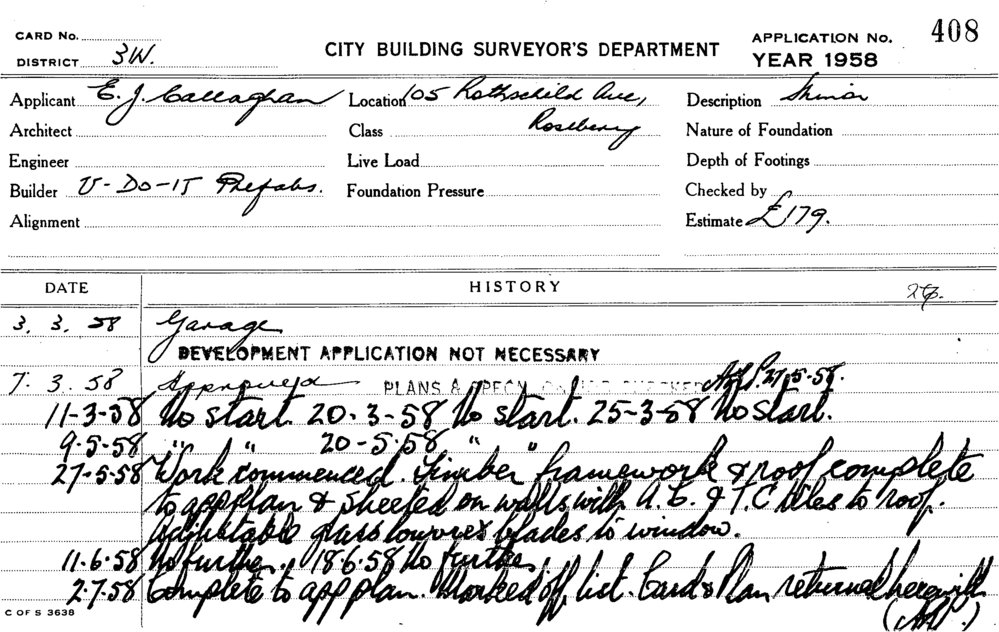 CARD No.
DISTRICT 3W.
CITY BUILDING SURVEYOR'S DEPARTMENT
APPLICATION No. 408
YEAR 1958
Applicant E. J. Callaghan Location 105 Rothschild Ave, Description Minor
Architect Class Rosebery Nature of Foundation
Engineer Live Load Depth of Footings
Builder U-Do-It Prefabs. Foundation Pressure Checked by
Alignment Estimate £179.
DATE HISTORY
3. 3. 58 Garage
DEVELOPMENT APPLICATION NOT NECESSARY
7. 3. 58 Approved PLANS & SPECN CHECKED 27/5-58.
11-3-58 No start. 20-3-58 No start. 25-3-58 No start.
9-5-58 " " 20-5-58 " "
27-5-58 Work commenced. Timber framework & roof complete
to app plan & sheeted on walls with A.C. & T.C tiles to roof.
Adjustable glass louvres blades to window.
11.6.58 No further. 18.6.58 No further.
2.7.58 Complete to app plan. Marked off list. Card & Plan returned herewith
C OF S 3638